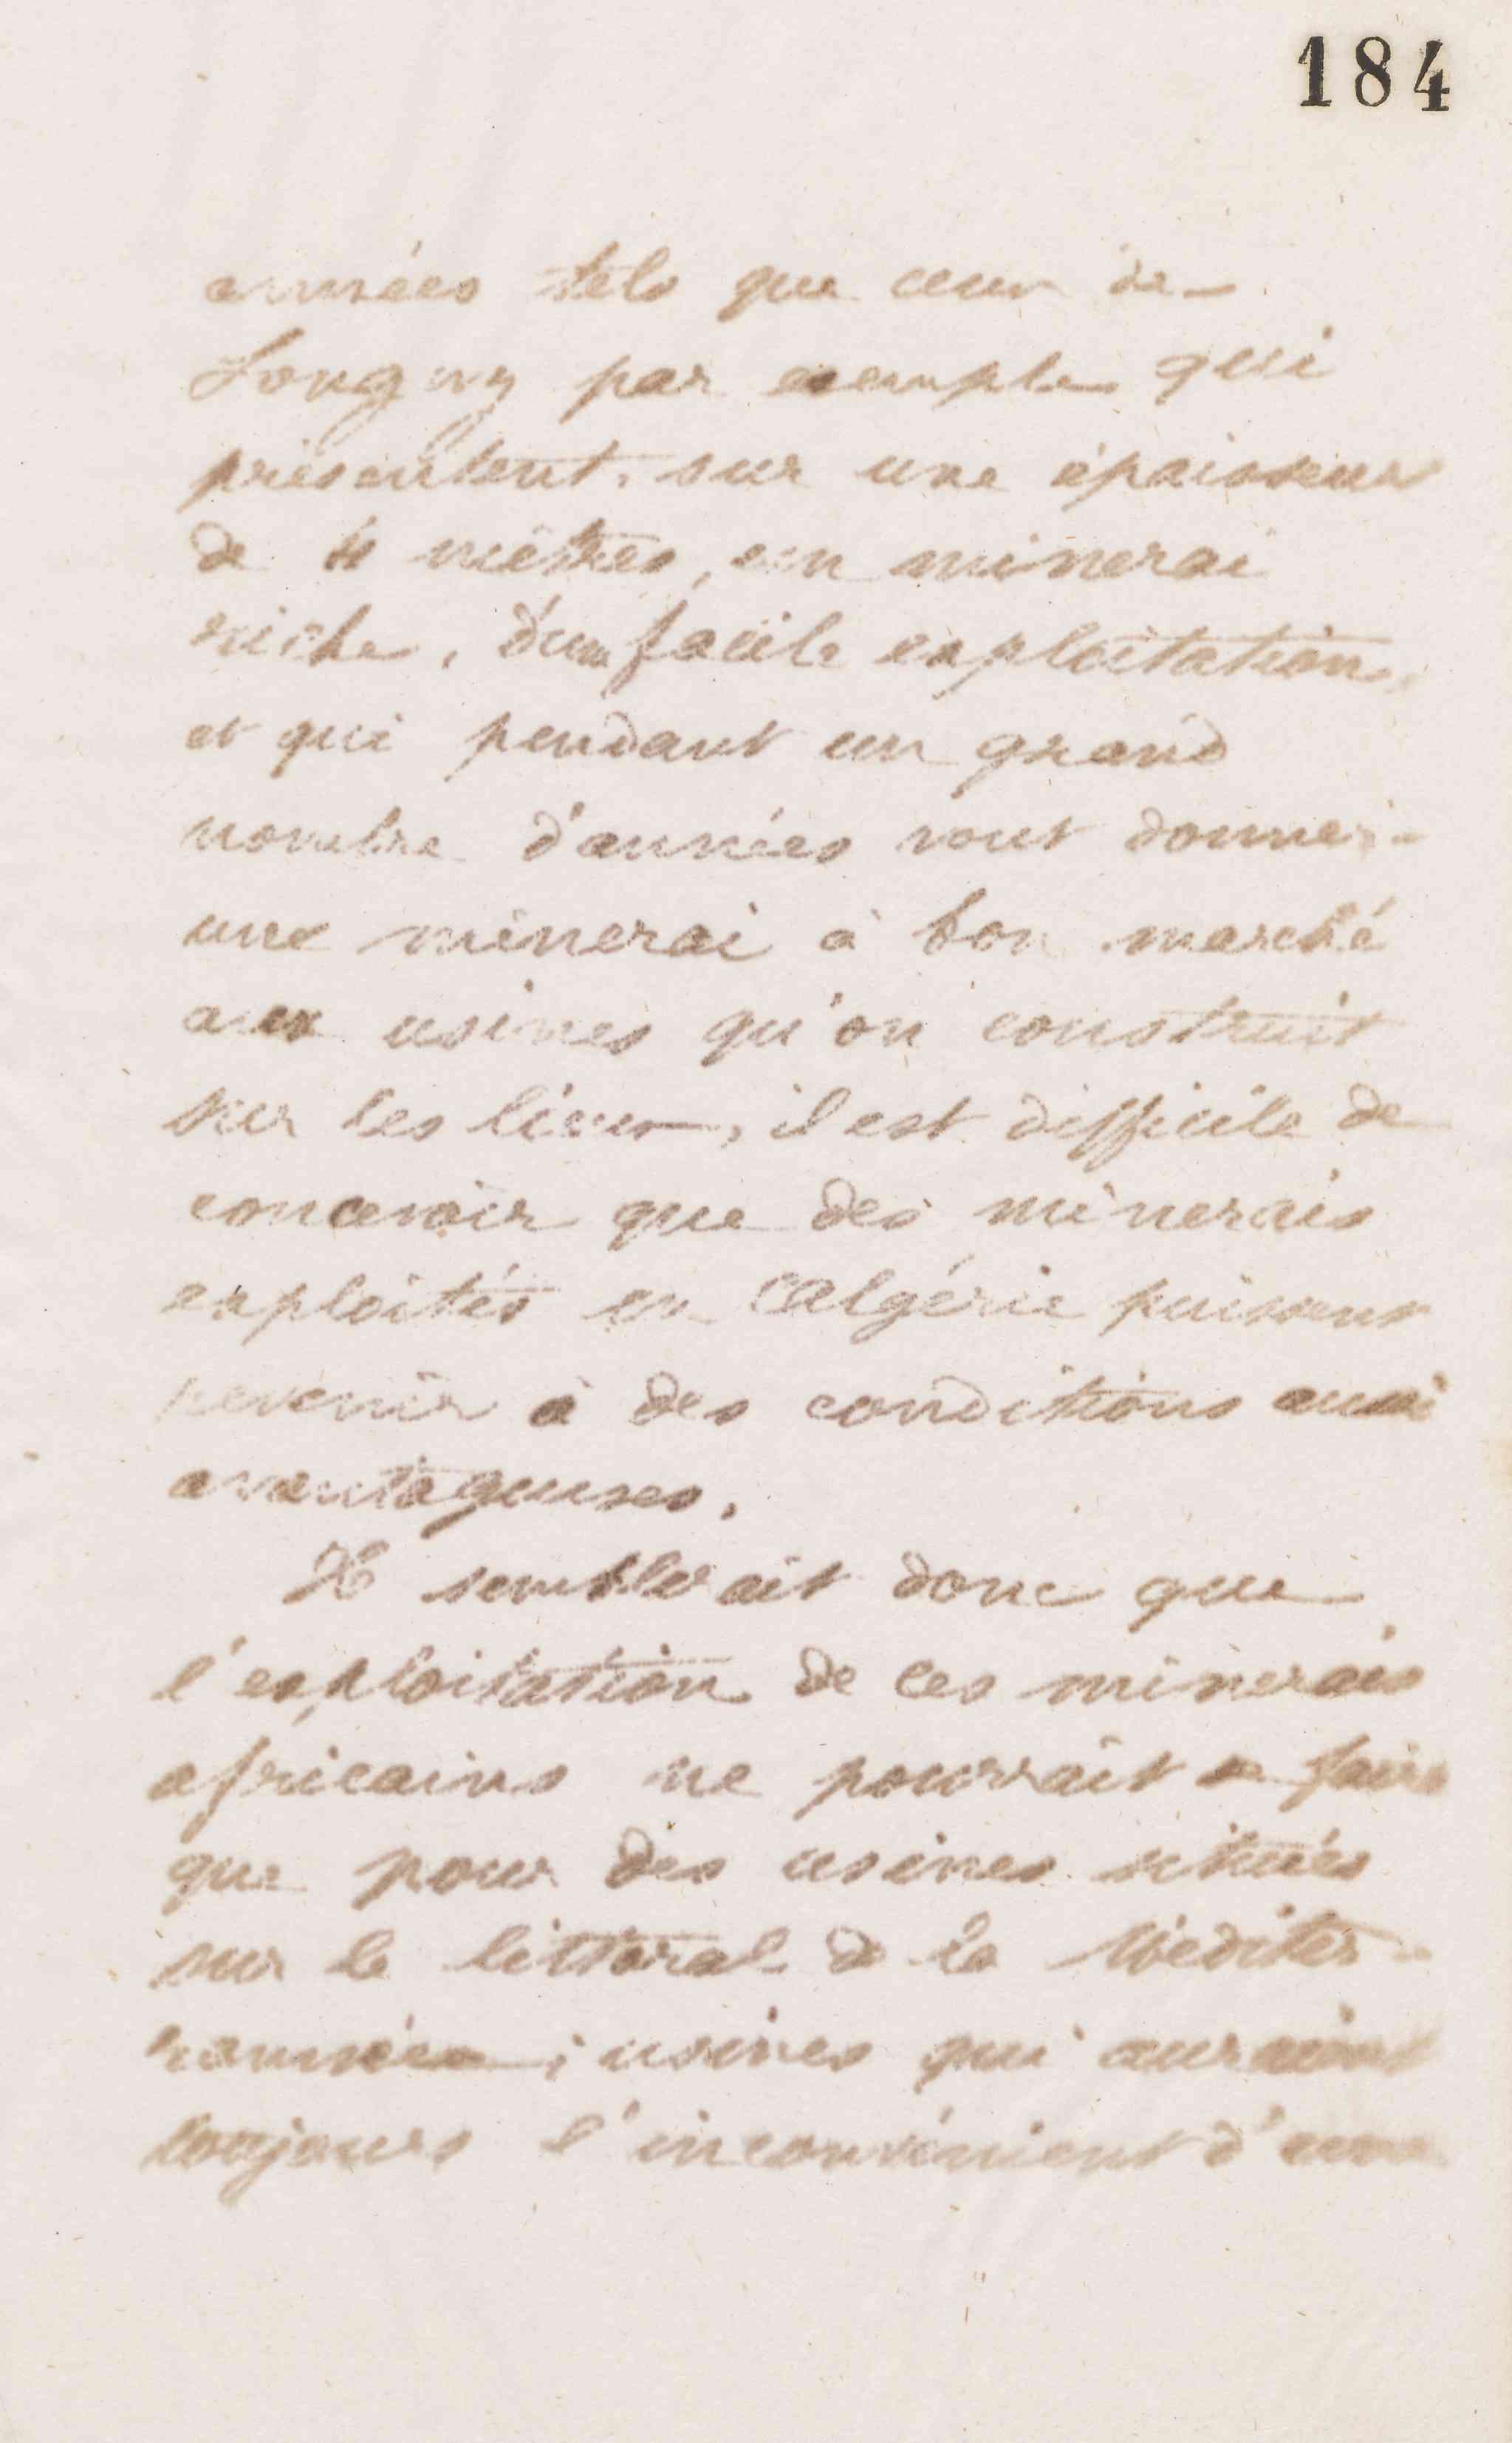 184
années tels que ceux de
Longwy par exemple qui
présentent, sur une épaisseur
de 4 mètres, un minerai
riche, d'une facile exploitation,
et qui pendant un grand
nombre d'années vont donner
une minerai à bon marché
aux usines qu'on construit
sur les lieux, il est difficile de
concevoir que des minerais
exploités en Algérie puissent
revenir à des conditions aussi
avantageuses.
Il semblerait donc que
l'exploitation de ces minerais
africains ne pourrait se faire
que pour des usines situées
sur le littoral de la Méditer-
ranée, usines qui auraient
toujours l'inconvénient d'une